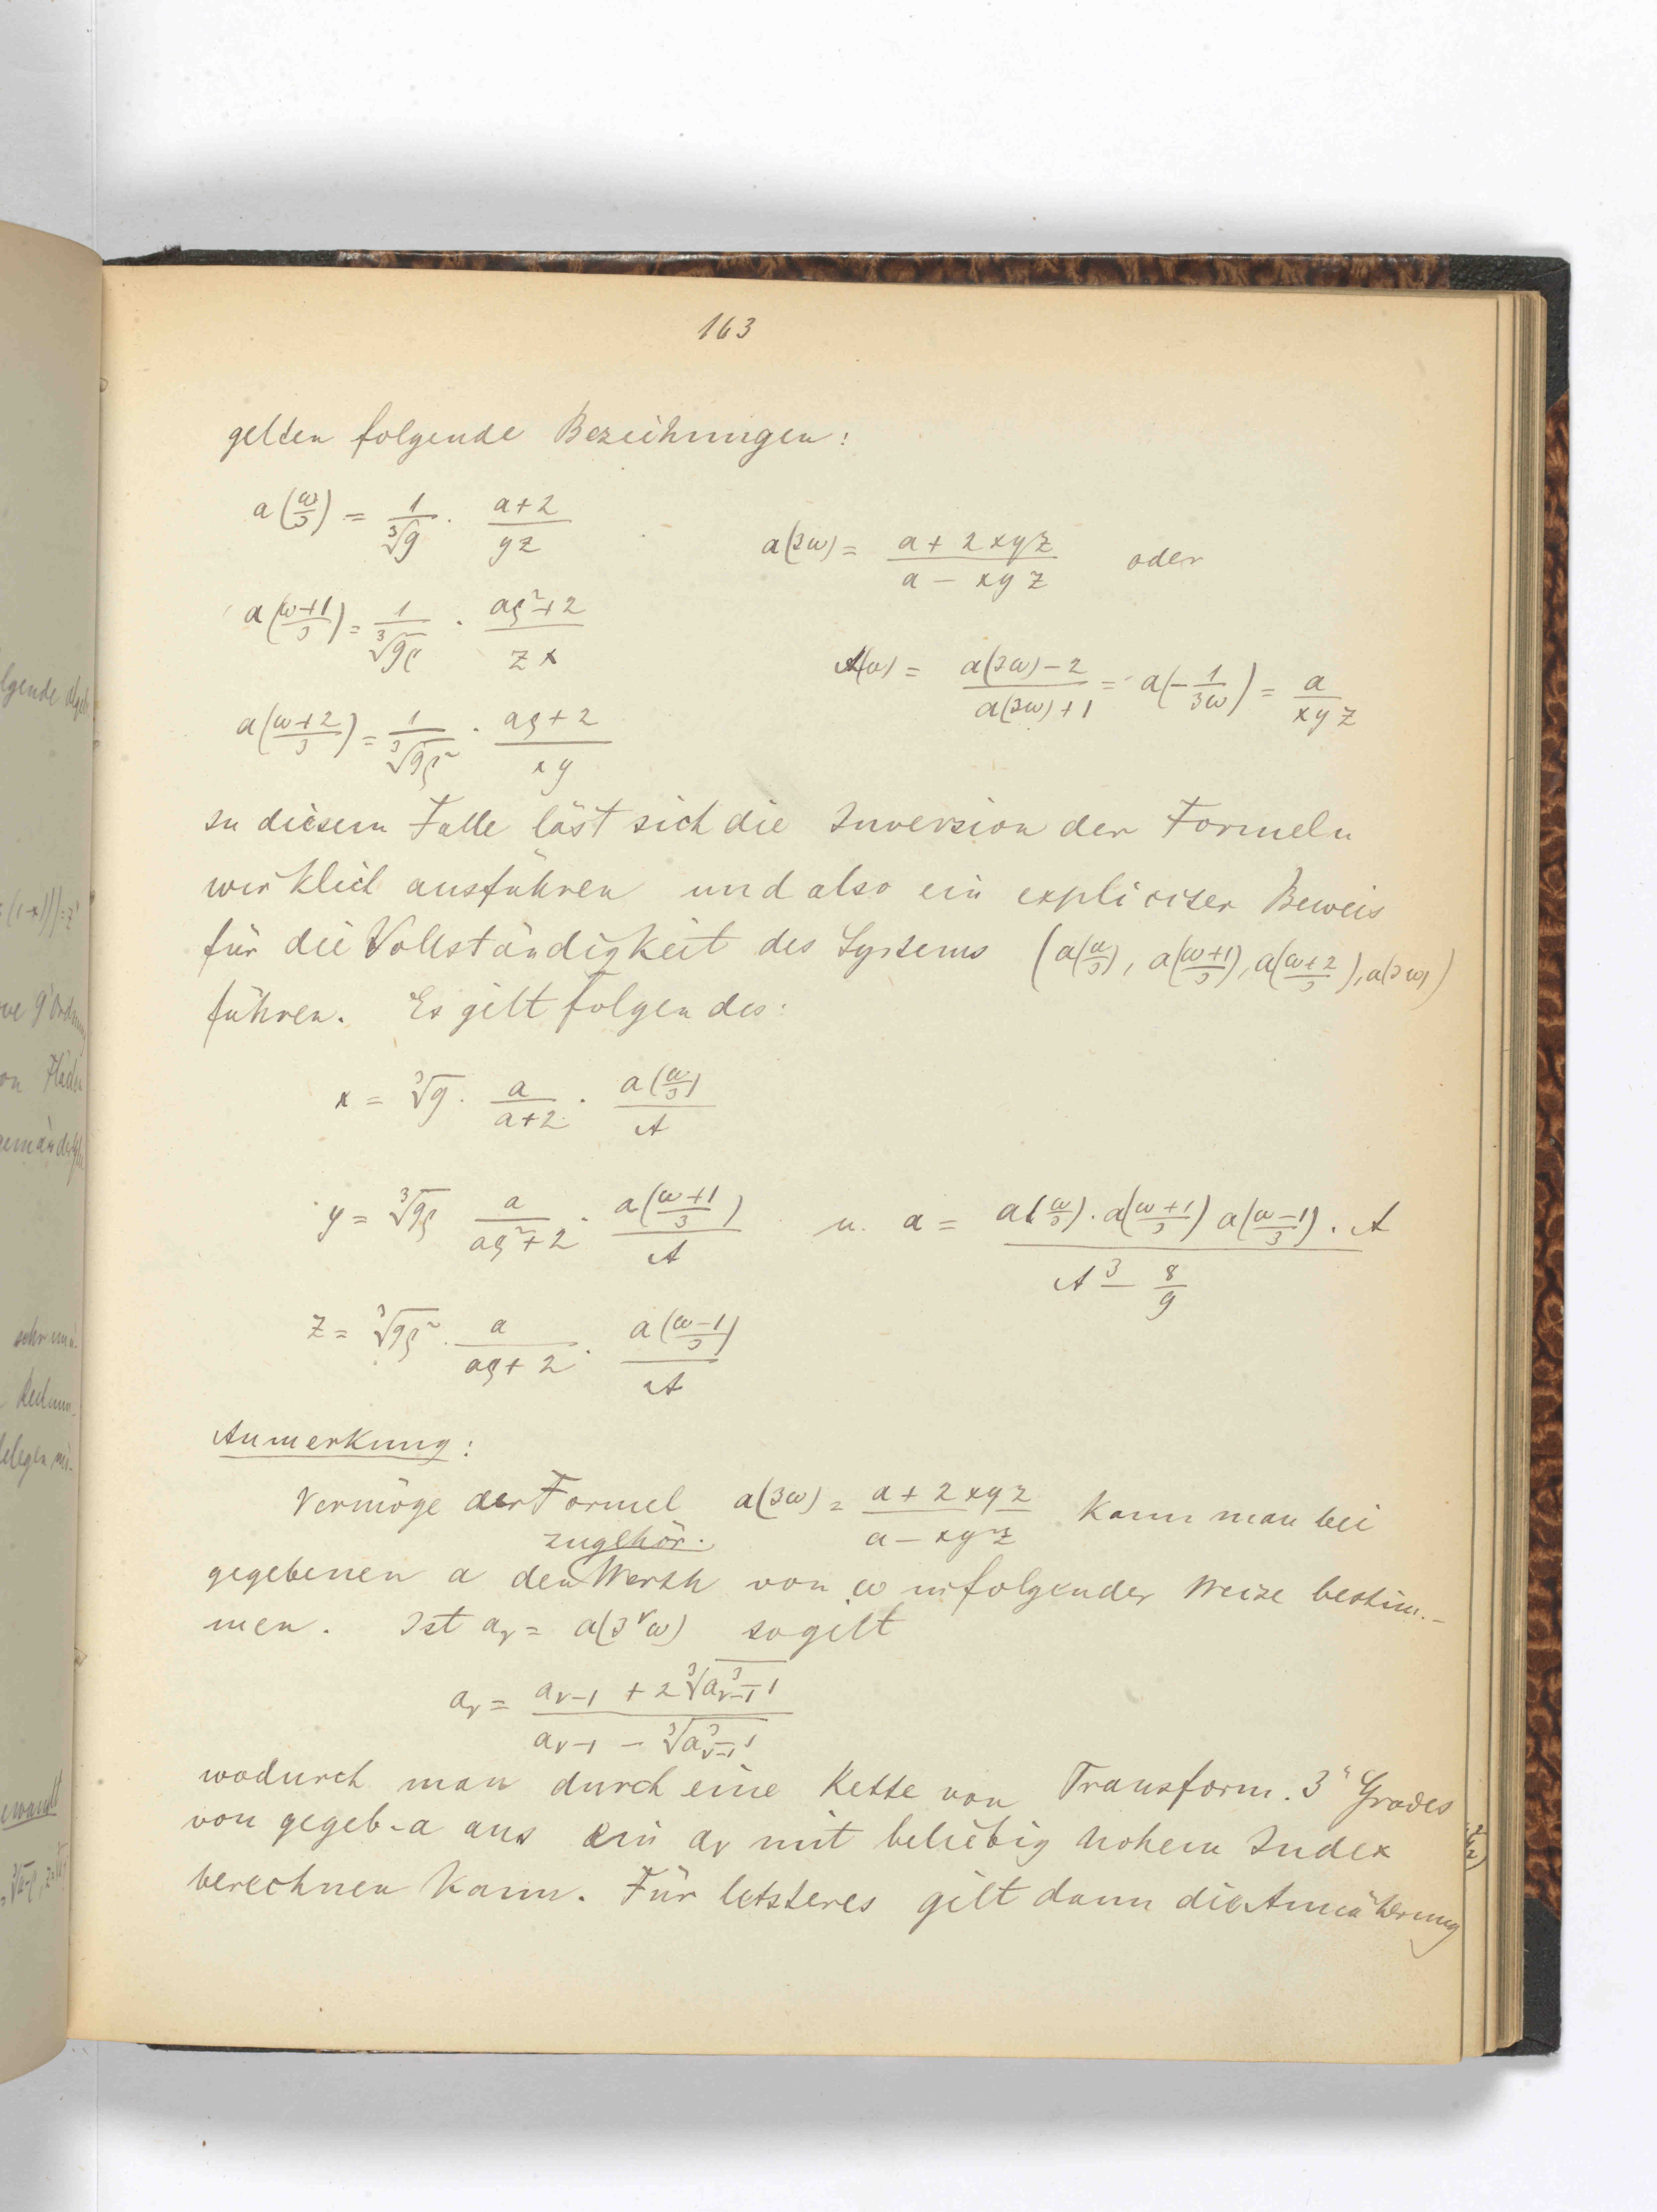 163
gelten folgende Bezeihungen:
a(ω/3) = 1/∛9 · (a+2)/(yz)
a(3ω) = (a + 2xyz)/(a − xyz) oder
a((ω+1)/3) = 1/∛(9ρ) · (aρ²+2)/(zx)
A(ω) = (a(3ω)−2)/(a(3ω)+1) = a(−1/(3ω)) = a/(xyz)
a((ω+2)/3) = 1/∛(9ρ²) · (aρ+2)/(xy)
In diesem Falle läst sich die Inversion der Formeln
wirklich ausführen und also ein expliciter Beweis
für die Vollständigkeit des Systems (a(ω/3), a((ω+1)/3), a((ω+2)/3), a(3ω))
führen. Es gilt folgendes:
x = ∛9 · a/(a+2) · a(ω/3)/A
y = ∛(9ρ) a/(aρ²+2) · a((ω+1)/3)/A u. a = (a(ω/3) · a((ω+1)/3) a((ω−1)/3) · A)/(A³ − 8/9)
z = ∛(9ρ²) · a/(aρ+2) · a((ω−1)/3)/A
Anmerkung:
Vermöge der Formel a(3ω) = (a + 2xyz)/(a − xyz) kann man bei
zugehör.
gegebenen a den Werth von ω in folgender Weise bestim-
men. Ist aᵥ = a(3^ν ω) so gilt
aᵥ = (aᵥ₋₁ + 2∛(a³ᵥ₋₁ − 1))/(aᵥ₋₁ − ∛(a³ᵥ₋₁ − 1))
wodurch man durch eine Kette von Transform. 3" Grades
von gegeb. a aus ein aᵥ mit beliebig hohem Index
berechnen kann. Für letzteres gilt dann die Annäherung